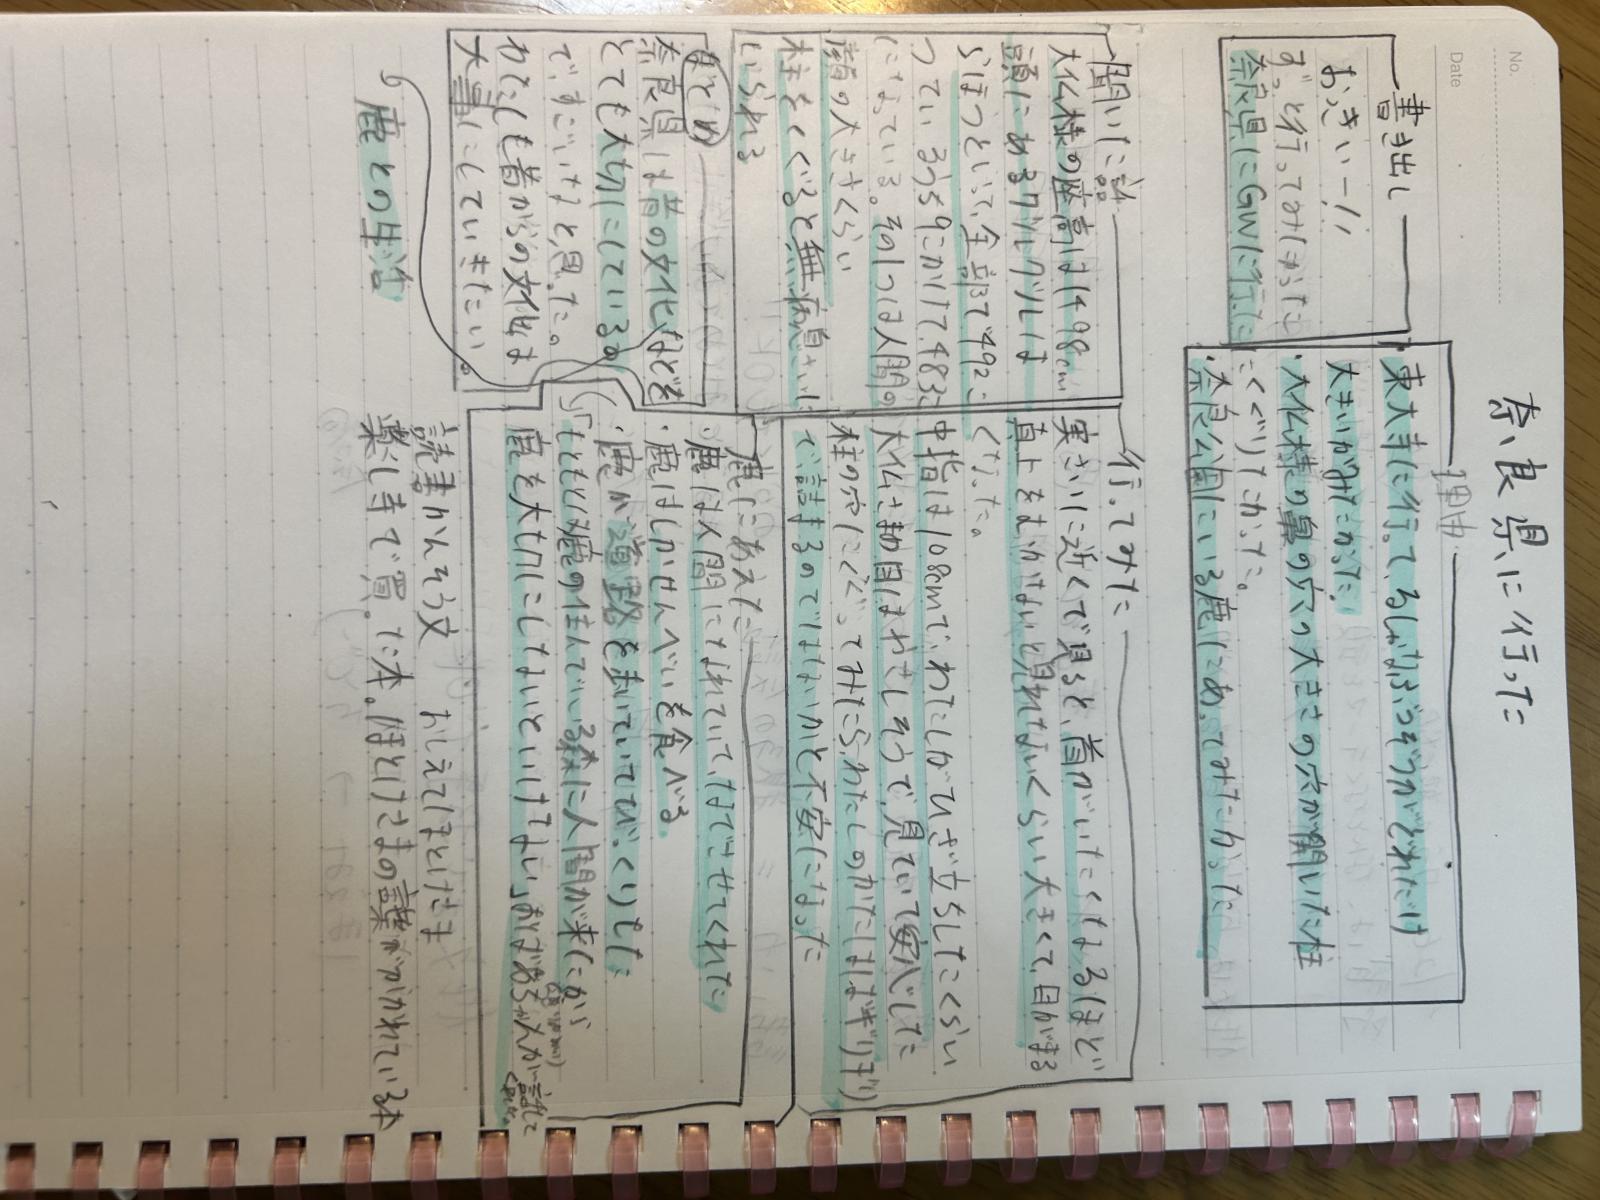 No.
Date
奈良県に行った
書き出し
おっきいー!!
ずっと行ってみたかった
奈良県にGWに行った
理由
東大寺に行って、るしゃなぶつぞうがどれだけ
大きいかみたかった
・大仏様の鼻の穴の大きさの穴が開いた柱
にくぐりたかった。
・奈良公園にいる鹿にあってみたかった
聞いた話
大仏様の座高は1498cm
頭にあるグルグルは
らほつといって、全部で492こ
ついているうち9こかけて、483こ
になっている。その1つは人間の
顔の大きさくらい
柱をくぐると無病息さいに
いられる
行ってみた
実さいに近くで見ると、首がいたくなるほど
真上をむかないと見れないくらい大きくて、目がまる
くなった。
中指は108cmで、わたしがひざ立ちしたくらい
大仏さまの目はやさしそうで、見ていて安心した
柱の穴にくぐってみたら、わたしのかたはばギリギリ
で詰まるのではないかと不安になった
まとめ
奈良県は昔の文化などを
とても大切にしているの
で、すごいなと思った。
わたしも昔からの文化は
大事にしていきたい。
鹿との生活
鹿にあえた
・鹿は人間になれていて、なでさせてくれた
・鹿はしかせんべいを食べる
・鹿が道路を歩いていてびっくりした
「もともと鹿の住んでいる森に人間が来たから
鹿を大切にしないといけない」おばあちゃんが話して
くれた。
読書かんそう文 おしえてほとけさま
薬し寺で買った本。ほとけさまの言葉がかかれている本